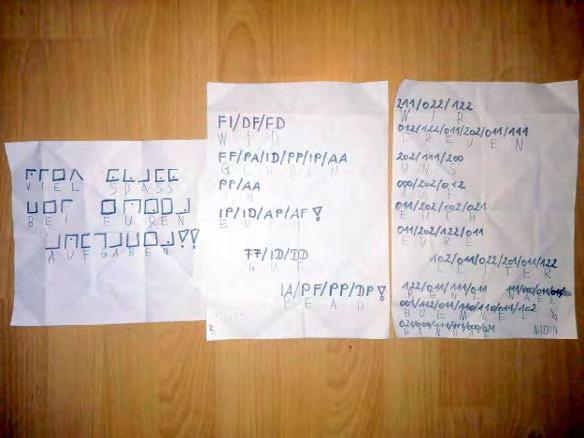 VIEL SPASS
BEI EUREN
AUFGABEN
FI/DF/FD
W I R
FF/PA/ID/PP/IP/AA
PP/AA
IP/ID/AP/AF!
E U C H
FF/ID/DD
G U T
IA/PF/PP/DP!
E A D
211/022/122
W I R
012/122/011/202/011/111
F R E U E N
202/111/200
U N S
000/202/012
A U F
011/202/002/021
E U C H
011/202/122/011
E U R E
102/011/022/201/011/122
L E I T E R
122/011/111/011
R E N E
&
021/000/111/111/000/021 NADIN
H A N N A H